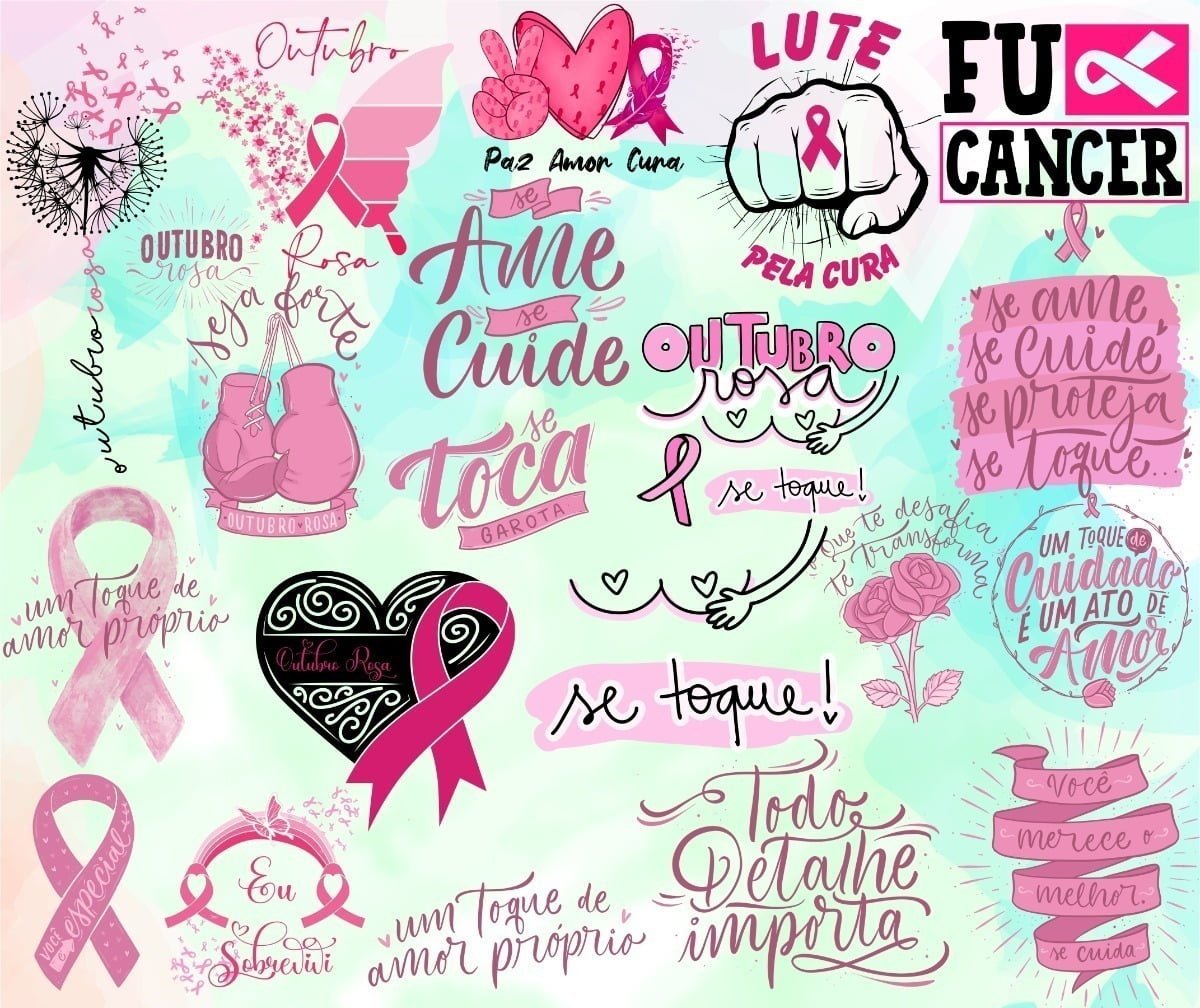 Outubro
Rosa
outubro rosa
OUTUBRO
rosa
Paz Amor Cura
LUTE
PELA CURA
FU
CANCER
se
Ame
se
Cuide
se
Toca
GAROTA
Seja forte
OUTUBRO ROSA
OUTUBRO
rosa
se toque!
se ame,
se cuide,
se proteja
se toque...
um toque de
amor próprio
Outubro Rosa
se toque!
O que te desafia
te transforma
UM TOQUE de
Cuidado
É UM ATO DE
Amor
VOCÊ é especial
Eu
Sobrevivi
um toque de
amor próprio
Todo
Detalhe
importa
Você
merece o
melhor.
se cuida